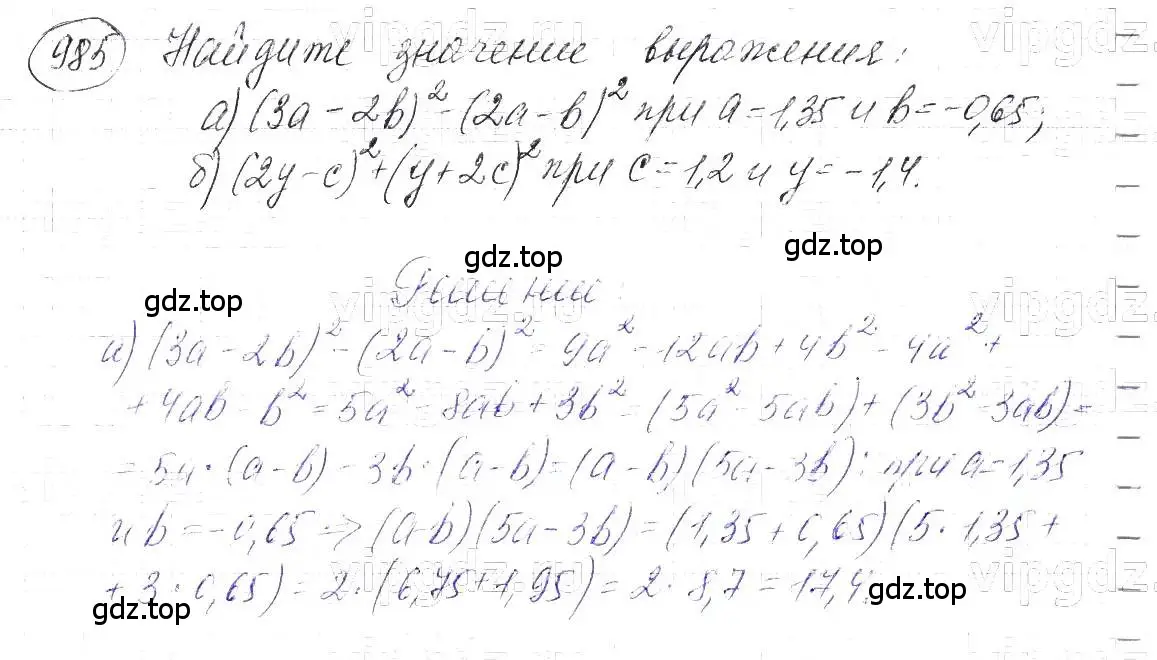 985 Найдите значение выражения:
а) (3a - 2b)² - (2a - b)² при a = 1,35 и b = -0,65;
б) (2y - c)² + (y + 2c)² при c = 1,2 и y = -1,4.
gdz.top gdz.top
Решение:
gdz.top vipgdz vipgdz
а) (3a - 2b)² - (2a - b)² = 9a² - 12ab + 4b² - 4a² +
+ 4ab - b² = 5a² - 8ab + 3b² = (5a² - 5ab) + (3b² - 3ab) =
= 5a · (a - b) - 3b · (a - b) = (a - b)(5a - 3b); при a = 1,35
и b = -0,65 ⇒ (a - b)(5a - 3b) = (1,35 + 0,65)(5 · 1,35 +
+ 3 · 0,65) = 2 · (6,75 + 1,95) = 2 · 8,7 = 17,4;
gdz.top gdz.top